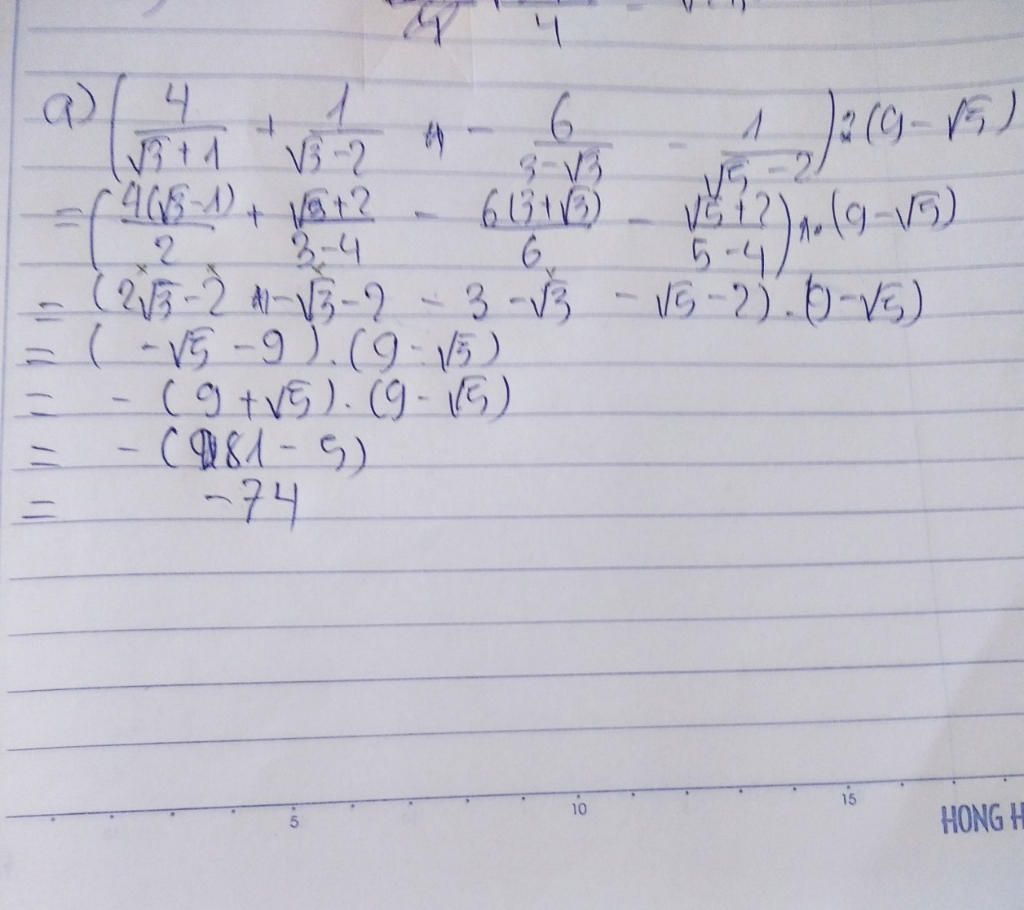 4
a) (4/(√3+1) + 1/(√3-2) - 6/(3-√3) - 1/(√5-2)) : (9-√5)
= (4(√3-1)/2 + (√3+2)/(3-4) - 6(3+√3)/6 - (√5+2)/(5-4)) . (9-√5)
= (2√3-2 -√3-2 - 3-√3 - √5-2) . (9-√5)
= (-√5-9) . (9-√5)
= -(9+√5) . (9-√5)
= -(81-5)
= -74
5 10 15
HONG H